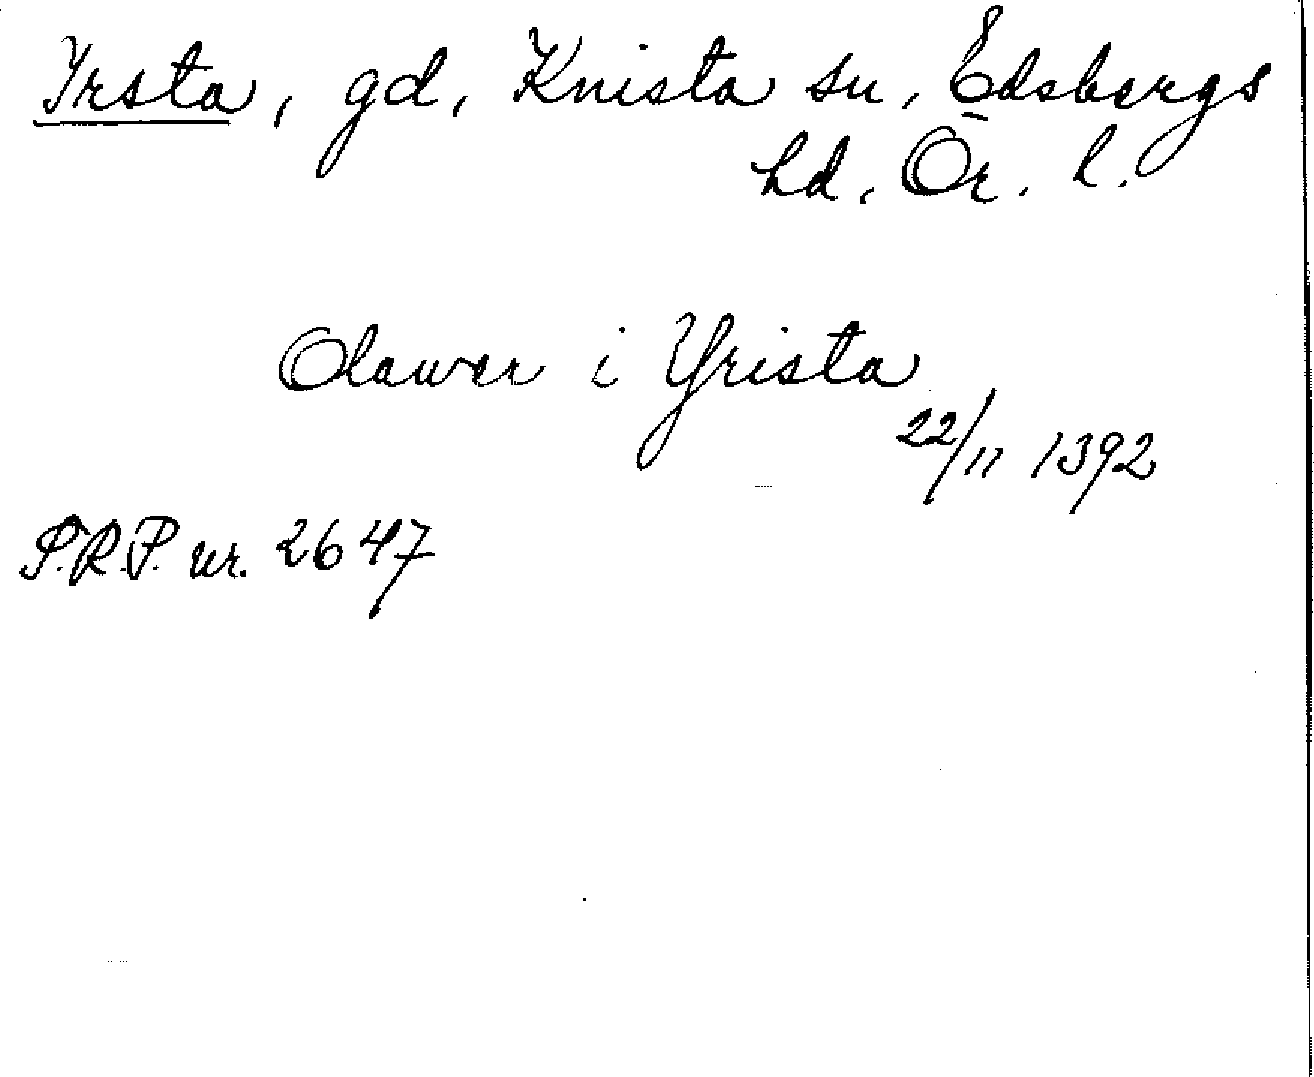 Yrsta, gd, Knista sn, Edsbergs
hd, Ör. l.
Olawer i Yrista
22/11 1392
P.R.P. nr. 2647